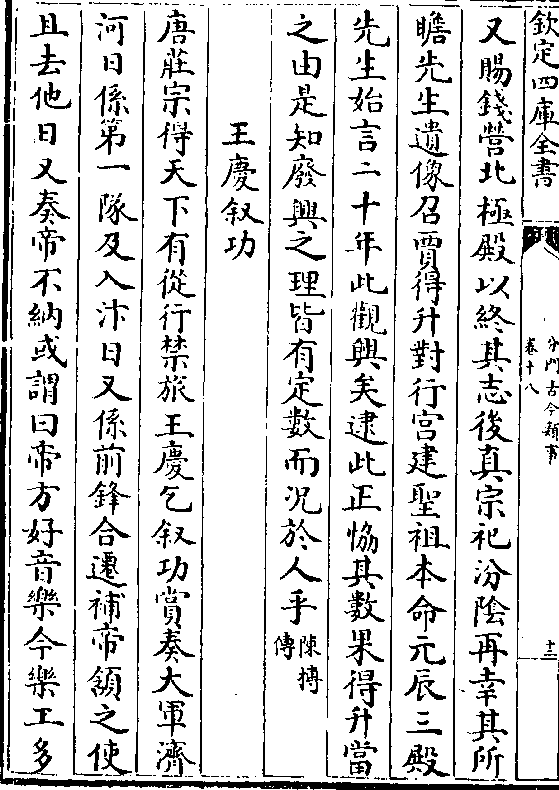 欽定四庫全書
分門古今類事
卷十八
十三
又賜錢營北極殿以終其志後真宗祀汾陰再幸其所
瞻先生遺像召賈得升對行宫建聖祖本命元辰三殿
先生始言二十年此觀興矣逮此正恊其數果得升當
之由是知廢興之理皆有定數而况於人乎陳摶傳
王慶叙功
唐莊宗得天下有從行禁旅王慶乞叙功賞奏大軍濟
河日係第一隊及入汴日又係前鋒合遷補帝頷之使
且去他日又奏帝不納或謂曰帝方好音樂今樂工多